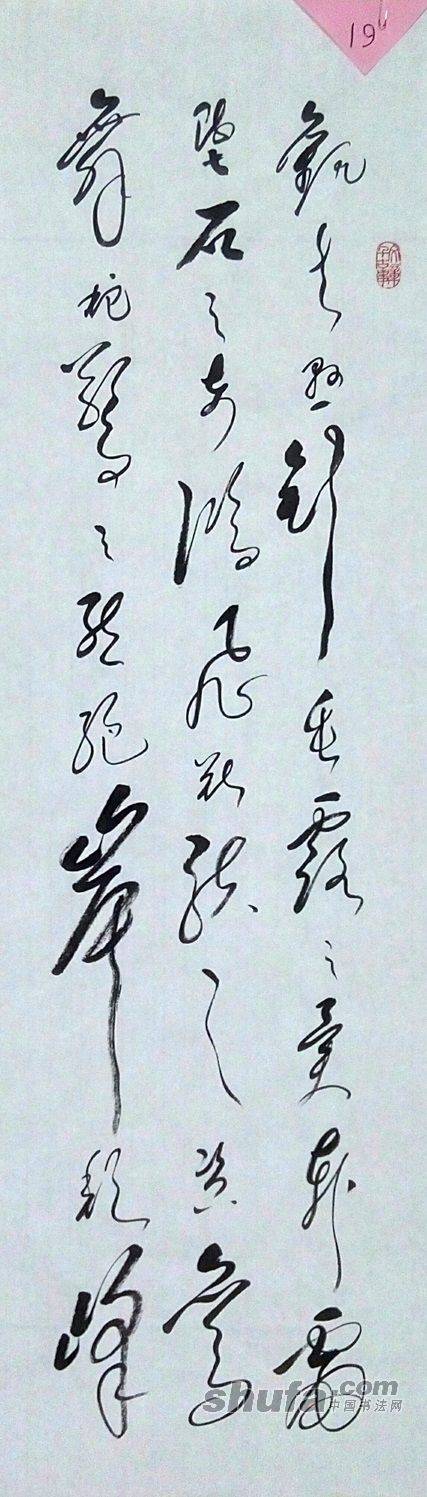 19
觀夫懸針垂露之異奔雷
墜石之奇鴻飛獸駭之資鸞
舞蛇驚之態絕岸頹峰
shufa.com
中国书法网